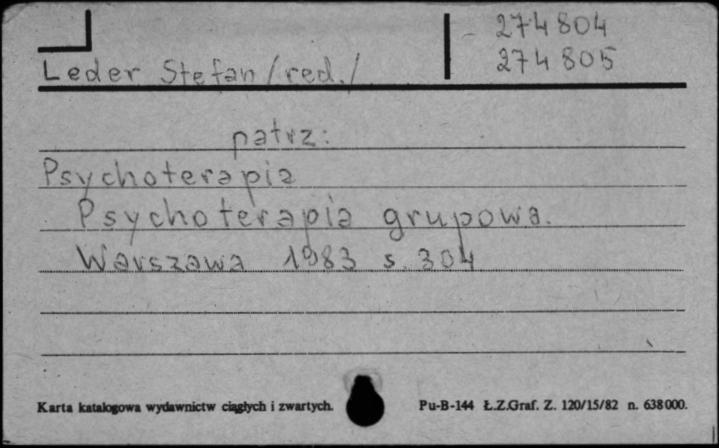 274804
Leder Stefan /red./ 274805
patrz:
Psychoterapia
Psychoterapia grupowa.
Warszawa 1983 s. 304
Karta katalogowa wydawnictw ciągłych i zwartych. Pu-B-144 Ł.Z.Graf. Z. 120/15/82 n. 638000.